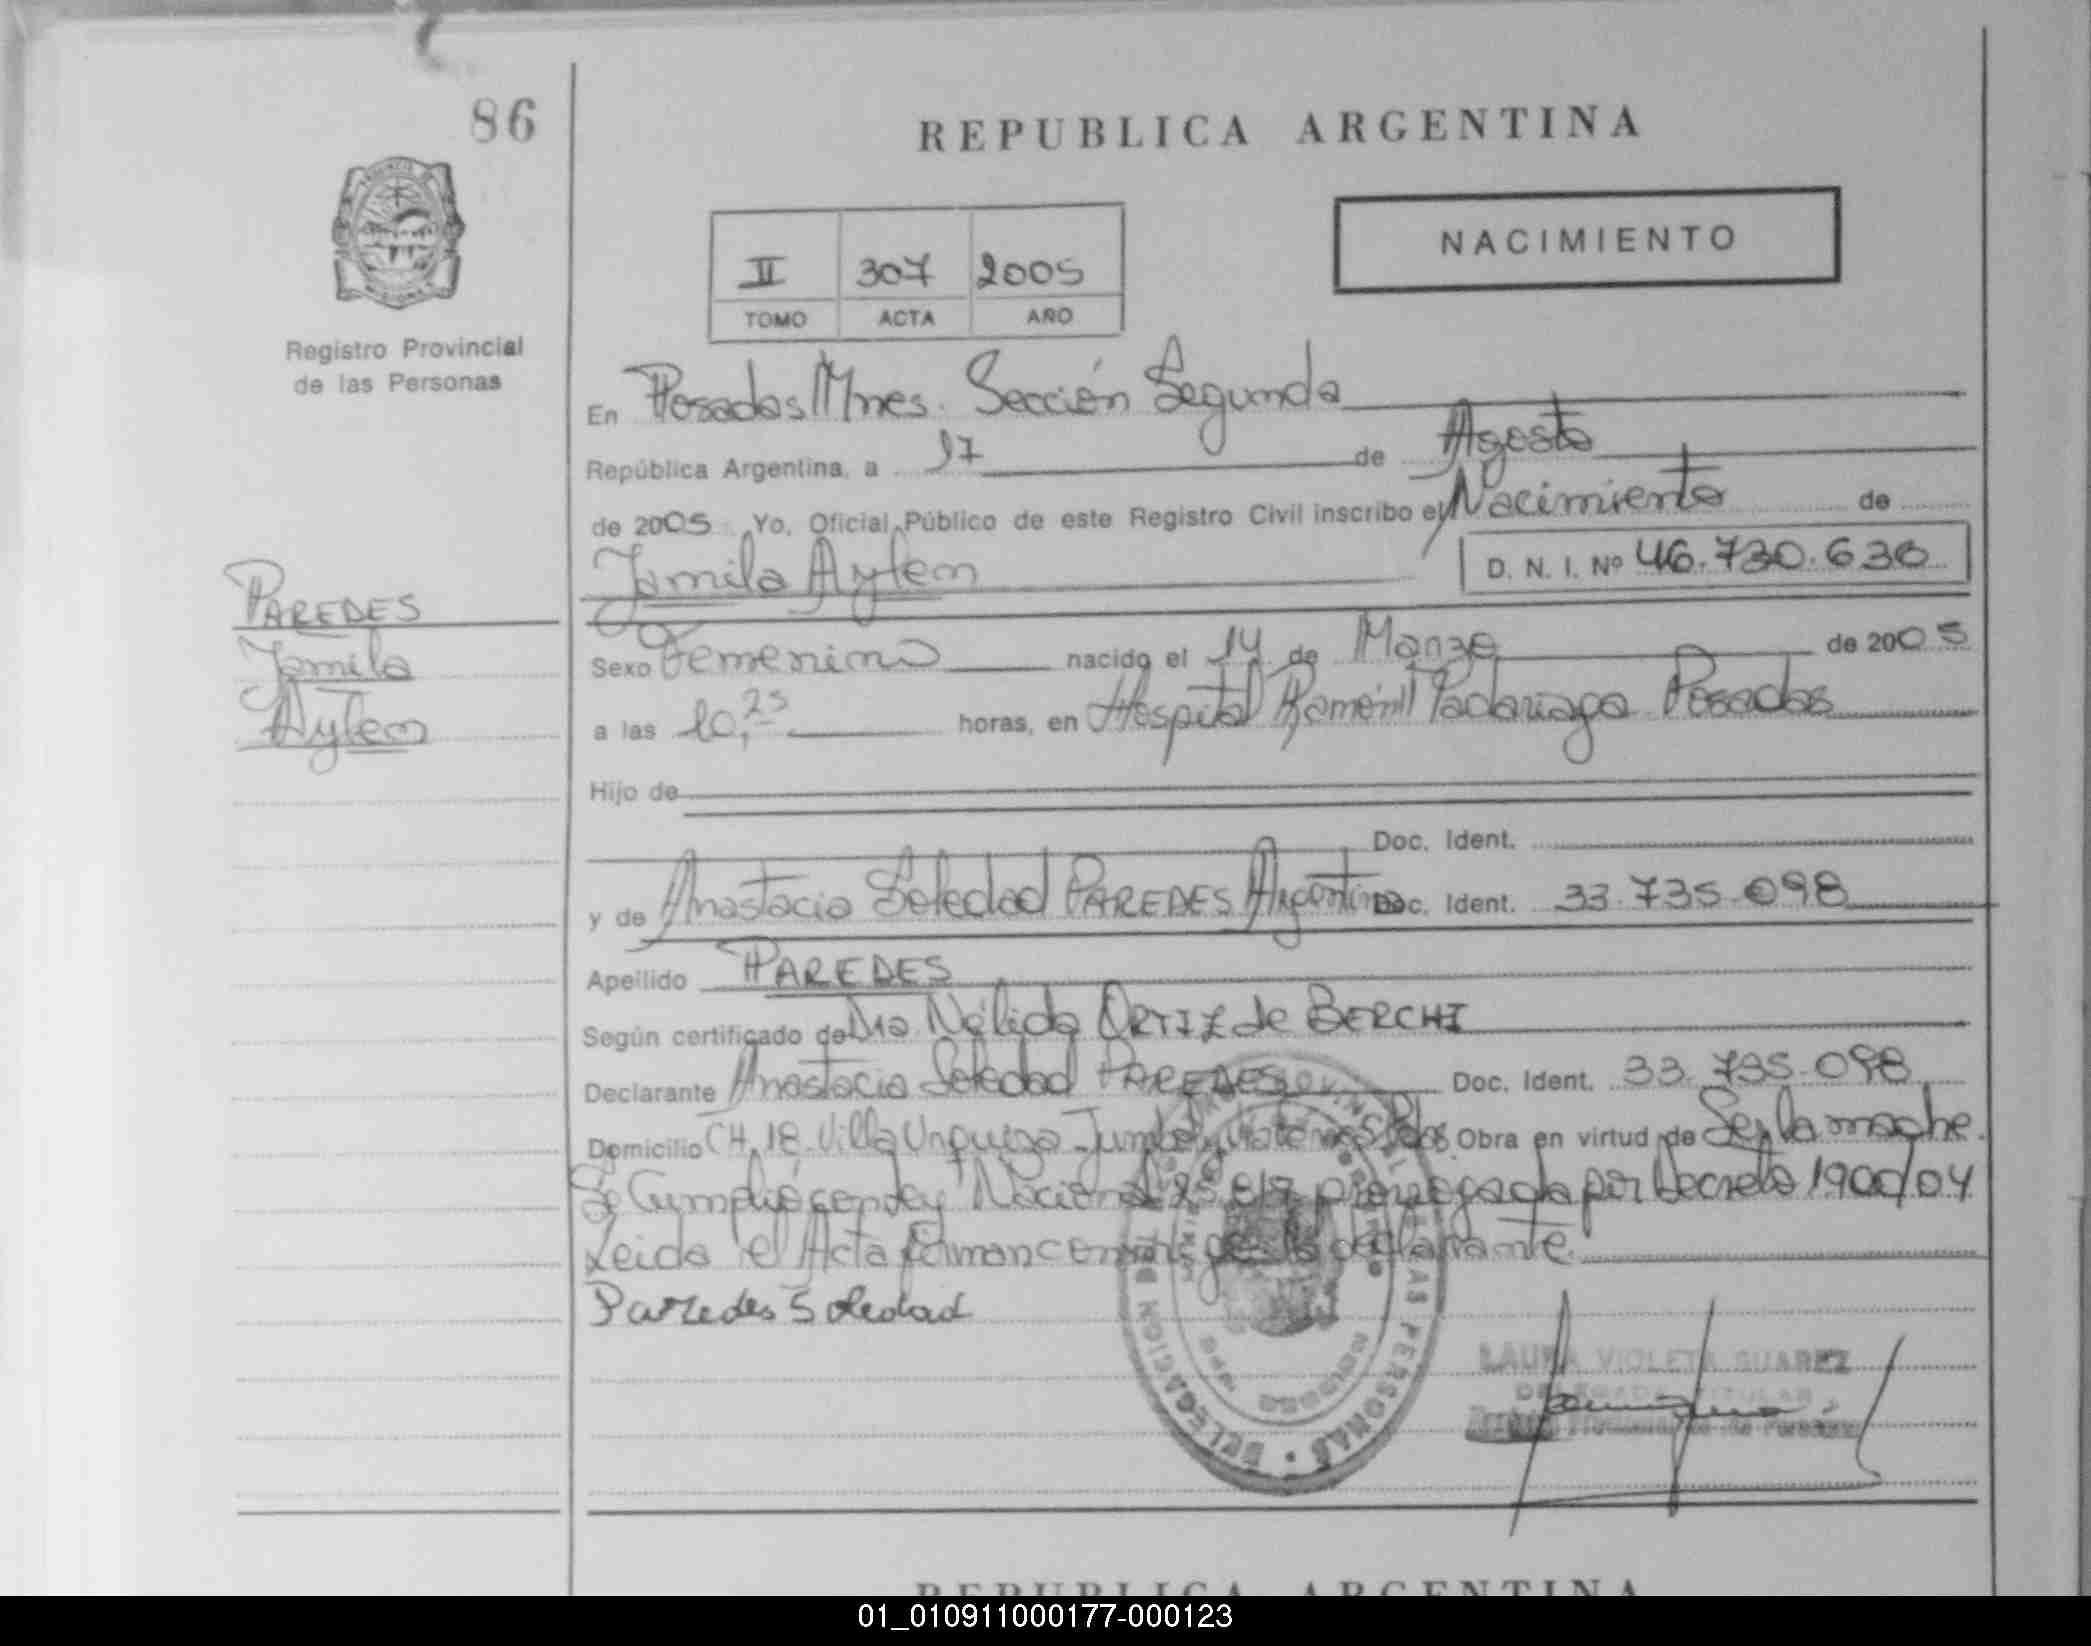 86
REPUBLICA ARGENTINA
NACIMIENTO
II 307 2005
TOMO ACTA AÑO
Registro Provincial
de las Personas
En Posadas Mnes. Sección Segunda
República Argentina, a 17 de Agosto
de 2005 Yo, Oficial Público de este Registro Civil inscribo el Nacimiento de
Jamila Aylen D. N. I. Nº 46.730.636
PAREDES
Jamila
Aylen
Sexo Femenino nacido el 14 de Marzo de 2005
a las 10,25 horas, en Hospital Ramón Madariaga Posadas
Hijo de
Doc. Ident.
y de Anastacia Soledad PAREDES Argentina Doc. Ident. 33.735.098
Apellido PAREDES
Según certificado de Dra Nélida ORTIZ de BERCHI
Declarante Anastacia Soledad PAREDES Doc. Ident. 33.735.098
Domicilio CH. 18 Villa Urquiza Obra en virtud de Ser la madre.
Se Cumplió con Ley Nacional 25.819 prorrogada por Decreto 1900/04
Leida el Acta firman conmigo la declarante
Paredes Soledad
LAURA VIOLETA SUAREZ
DELEGADA TITULAR
DELEGACION
PERSONAS
REPUBLICA ARGENTINA
01_010911000177-000123